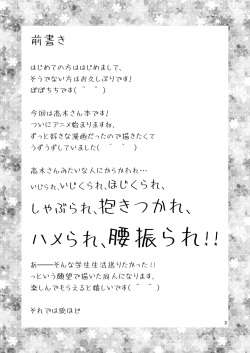 前書き
はじめての方ははじめまして、
そうでない方はお久しぶりです!
ぽぽちちです( ˆ ˆ )
今回は高木さん本です!
ついにアニメ始まりますね、
ずっと好きな漫画だったので描きたくて
うずうずしていました( ˆ ˆ )
高木さんみたいな人にからかわれ…
いじられ、いじくられ、ほじくられ、
しゃぶられ、抱きつかれ、
ハメられ、腰振られ!!
あーーそんな学生生活送りたかった!!
っという願望で描いた同人になります、
楽しんでもらえると嬉しいです( ˆ ˆ )
それでは後ほど
3